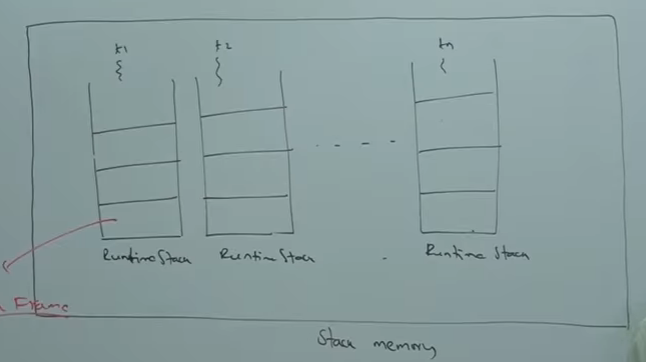 t1 t2 tn
Runtime Stack Runtime Stack Runtime Stack
Frame
Stack memory